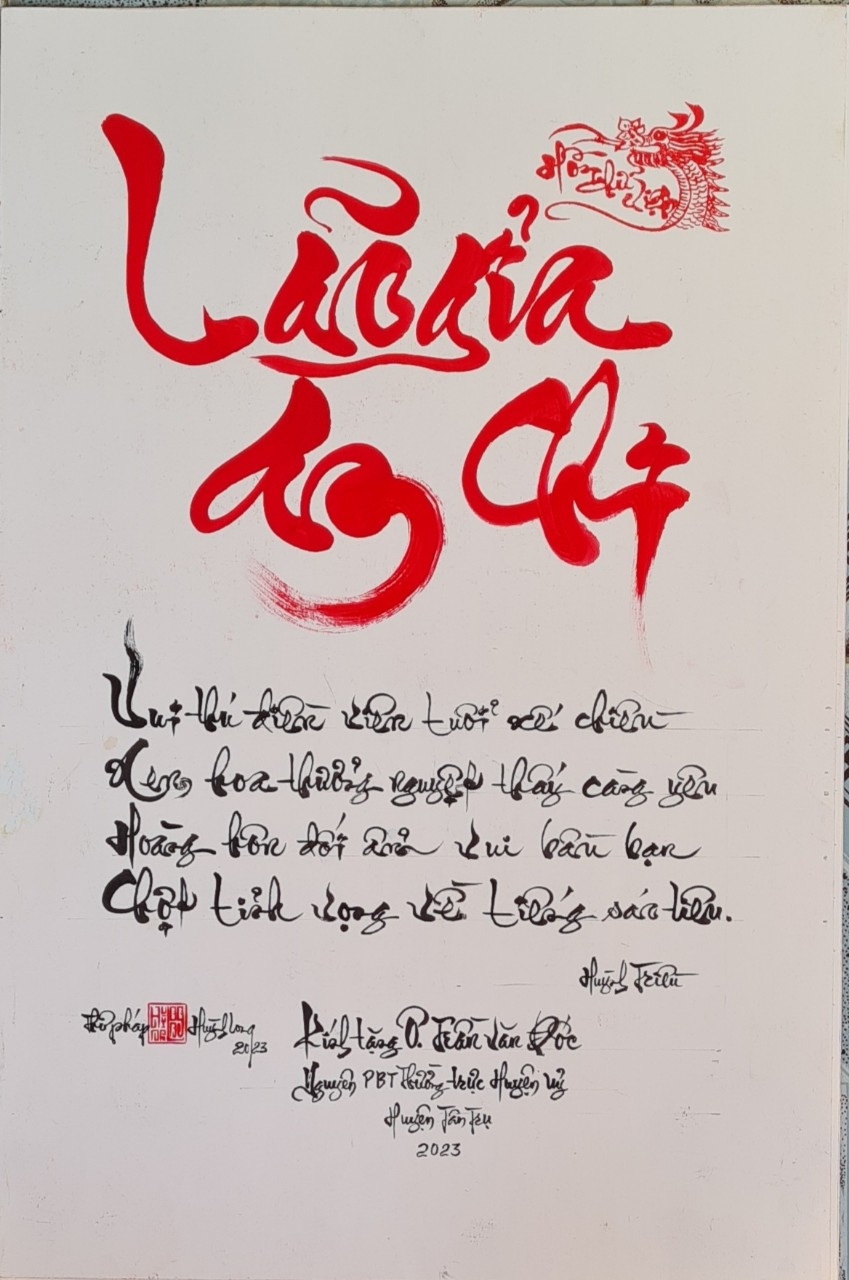 Hồn chữ Việt
Lão giả
an chi
Vui thú điền viên tuổi xế chiều
Xem hoa thưởng nguyệt thấy càng yêu
Hoàng hôn đối ẩm vui bầu bạn
Chợt tỉnh vọng về tiếng sáo tiêu.
Huỳnh Triều
Thư pháp Huỳnh Long
2023
Kính tặng Ô. Trần Văn Đốc
Nguyên PBT Thường trực Huyện ủy
Huyện Tân Trụ
2023